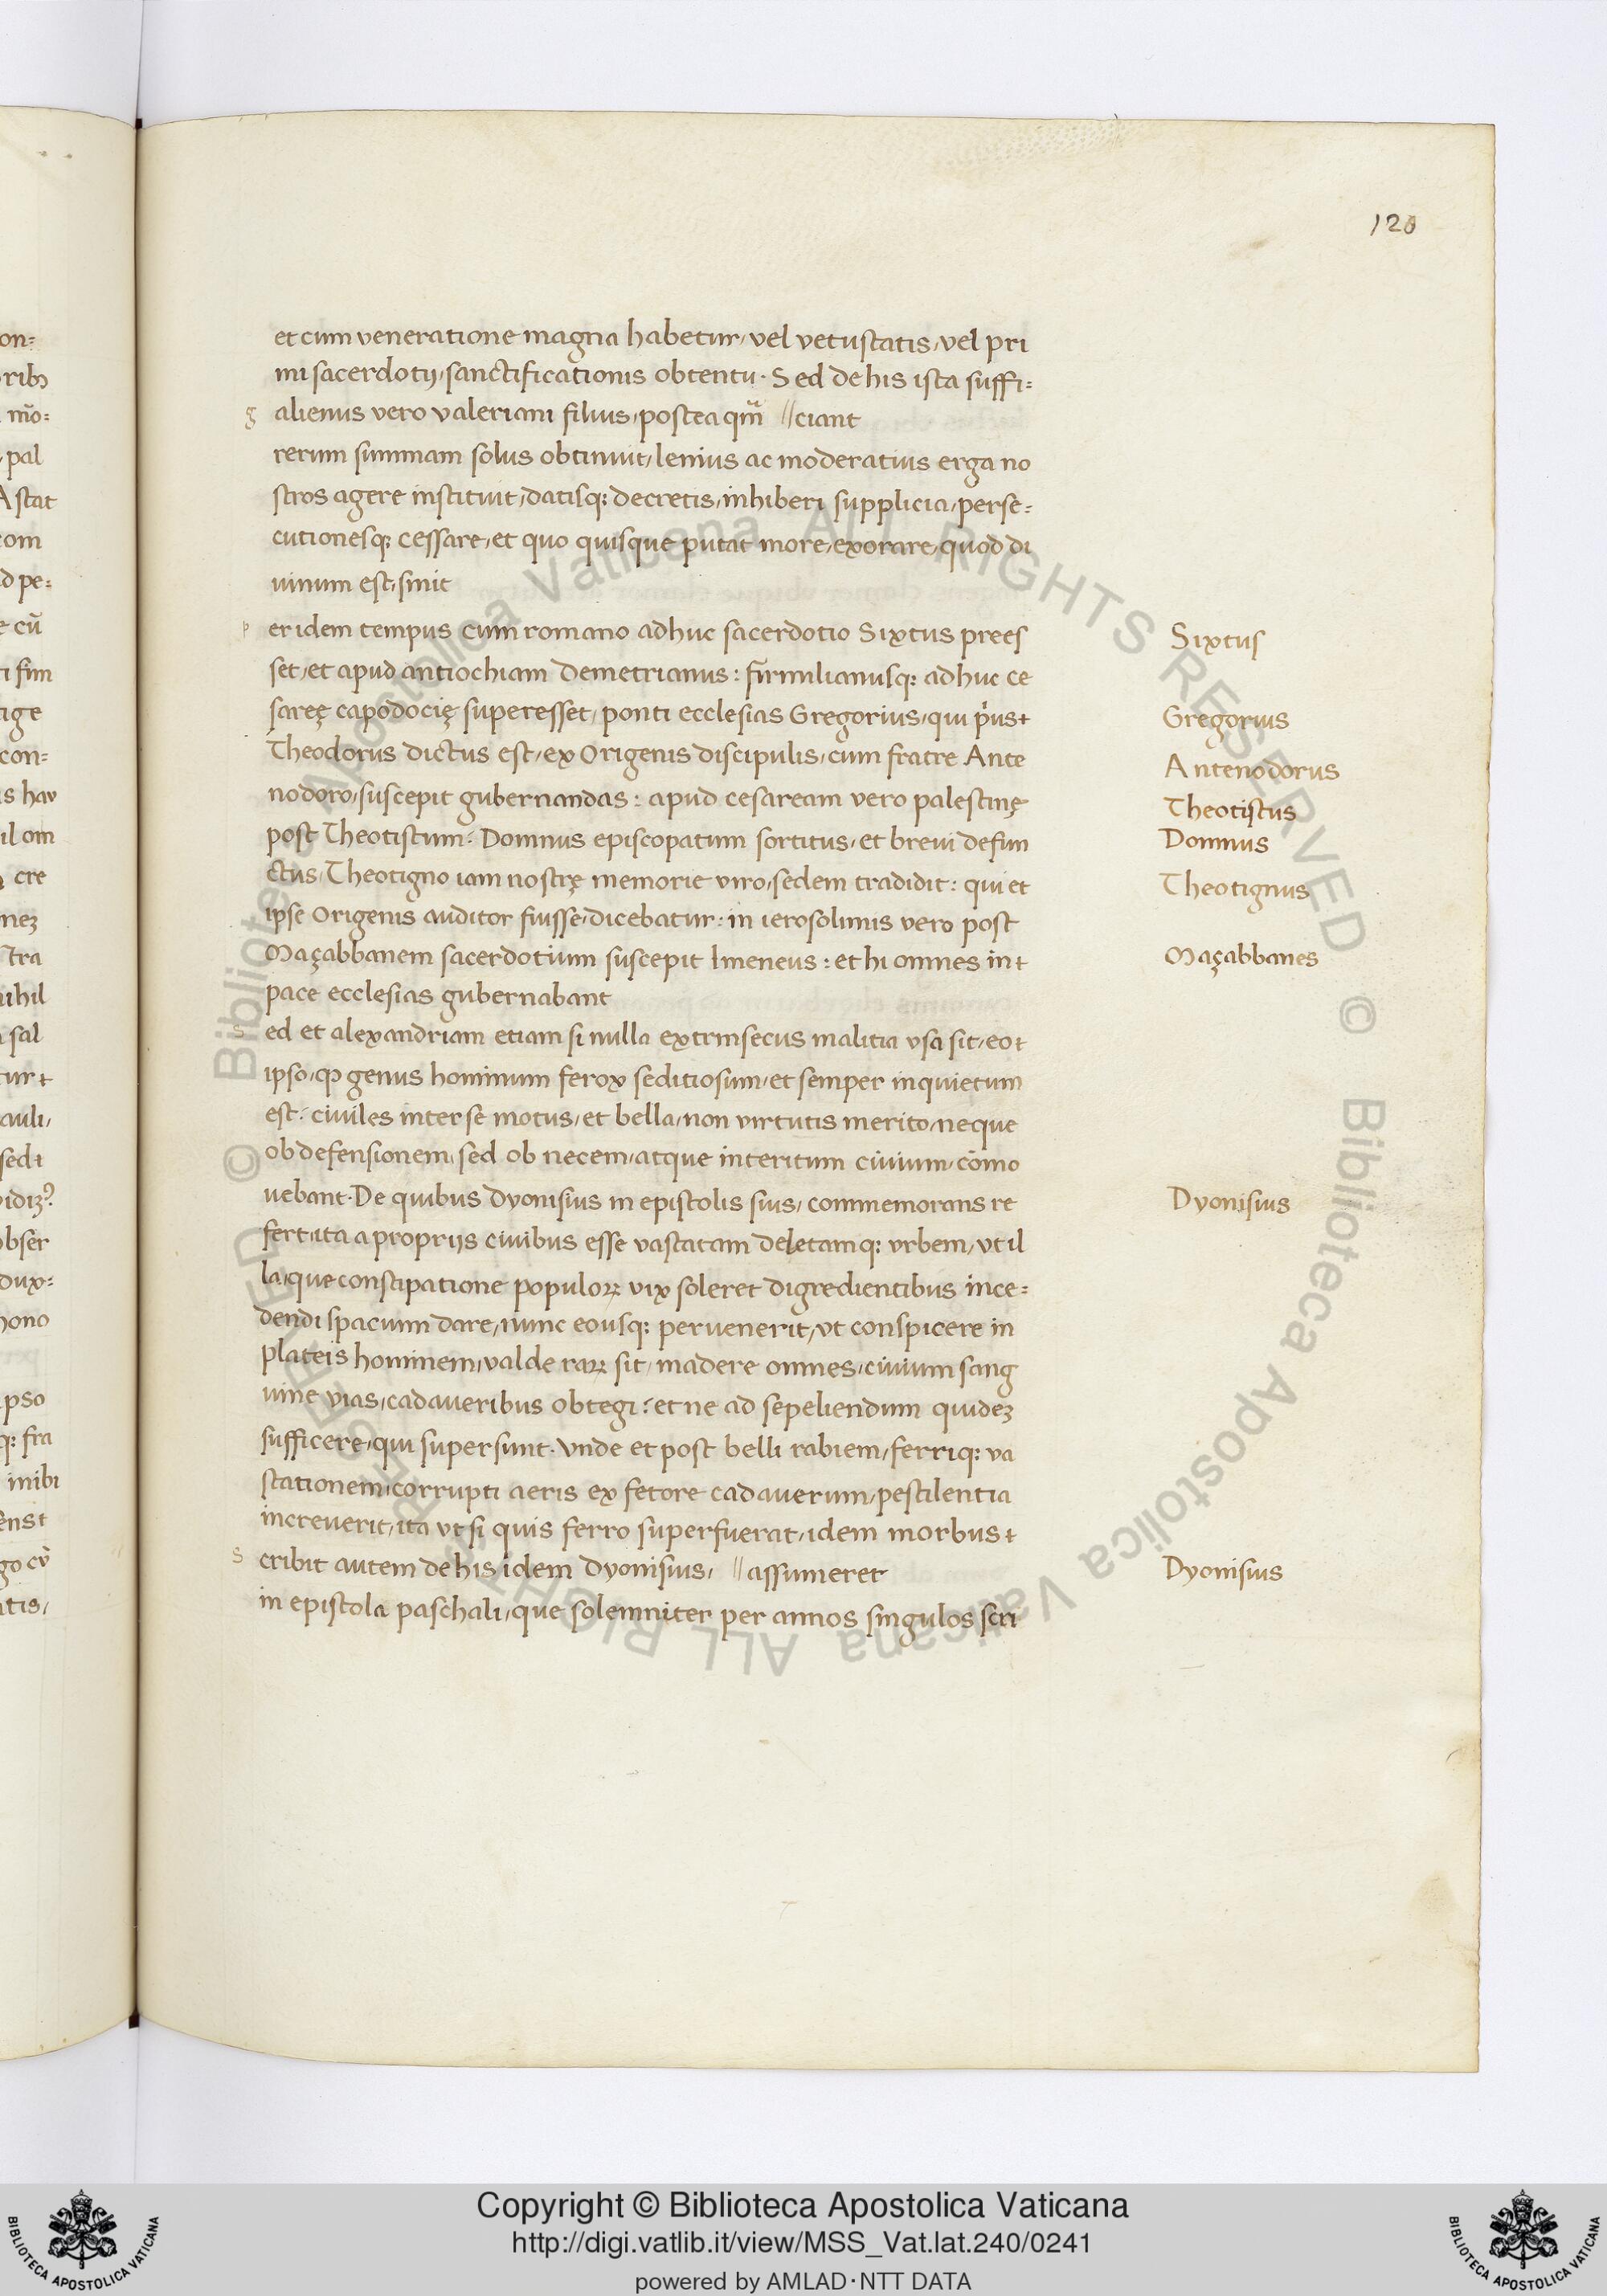 120
et cum veneratione magna habetur, vel vetustatis, vel pri
mi sacerdotij, sanctificationis obtentu. Sed de his ista suffi=
g alienus vero valeriani filius, postea qm̄ //ciant
rerum summam solus obtinuit, lenius ac moderatius erga no
stros agere instituit, datisq; decretis, inhiberi supplicia, perse=
cutionesq; cessare, et quo quisque putat more, exorare, quod di
uinum est, sinit
p er idem tempus cum romano adhuc sacerdotio Sixtus prees
Sixtus
set, et apud antiochiam Demetrianus: firmilianusq; adhuc ce
sareę capodocię superesset, ponti ecclesias Gregorius, qui p̍us
Gregorius
Theodorus dictus est, ex Origenis discipulis, cum fratre Ante
Antenodorus
nodoro, suscepit gubernandas: apud cesaream vero palestinę
Theotistus
post Theotistum: Domnus episcopatum sortitus, et brevi defun
Domnus
ctus, Theotigno iam nostrę memorie viro, sedem tradidit: qui et
Theotignus
ipse Origenis auditor fuisse, dicebatur: in ierosolimis vero post
Maçabbanem sacerdotium suscepit Imeneus: et hi omnes in
Maçabbanes
pace ecclesias gubernabant
s ed et alexandriam etiam si nulla extrinsecus malitia vsa sit, eo
ipso, qꝫ genus hominum ferox seditiosum, et semper inquietum
est: civiles inter se motus, et bella, non virtutis merito, neque
ob defensionem, sed ob necem, atque interitum civium, cōmo
uebant. De quibus Dyonisius in epistolis suis, commemorans re
Dyonisius
fert, ita a proprijs civibus esse vastatam deletamq; vrbem, vt il
la, que constipatione populoꝝ vix soleret digredientibus ince=
dendi spacium dare, nunc eousq; pervenerit, vt conspicere in
plateis hominem, valde raꝝ sit, madere omnes, civium sang
uine vias, cadaveribus obtegi: et ne ad sepeliendum quideꝫ
sufficere, qui supersunt. Vnde et post belli rabiem, ferriq; va
stationem, corrupti aeris ex fetore cadaverum, pestilentia
increverit, ita vt si quis ferro superfuerat, idem morbus
s cribit autem de his idem Dyonisius, //assumeret
Dyonisius
in epistola paschali, que solemniter per annos singulos scri
Copyright © Biblioteca Apostolica Vaticana
http://digi.vatlib.it/view/MSS_Vat.lat.240/0241
powered by AMLAD·NTT DATA